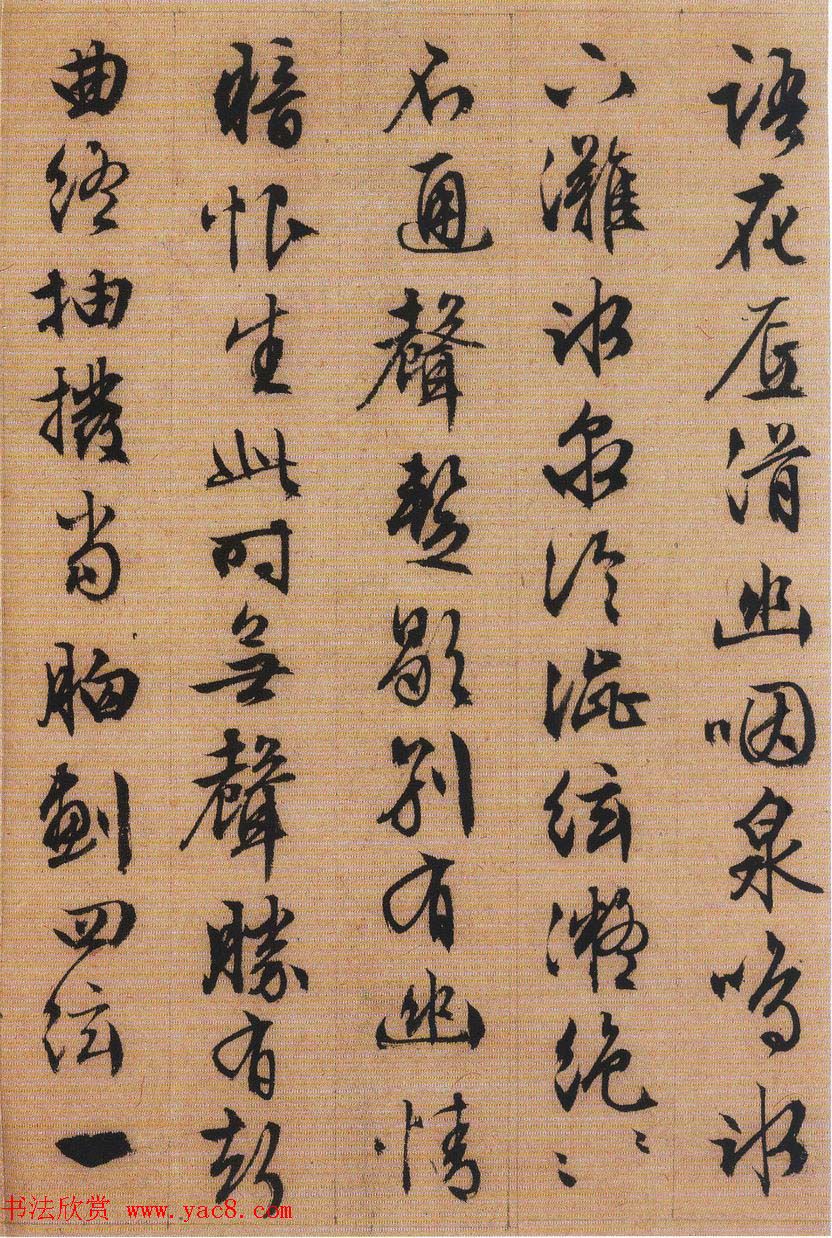 語花底滑幽咽泉鳴氷
下灘氷泉冷澁絃凝絶〻〻
不通聲暫歇別有幽情
暗恨生此時無聲勝有
曲終抽撥當胸劃四絃一
书法欣赏 www.yac8.com